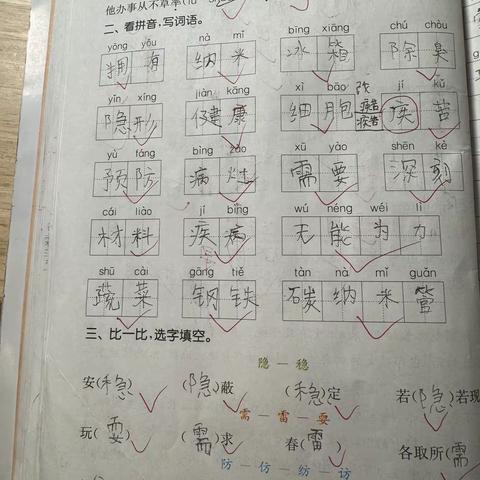 他办事从不草率
二、看拼音，写词语。
yōng yǒu nà mǐ bīng xiāng chú chòu
拥有 纳米 冰箱 除臭
yǐn xíng jiàn kāng xì bāo jí kǔ
隐形 健康 细胞 疾苦
yù fáng bìng zào xū yào shēn kè
预防 病灶 需要 深刻
cái liào jí bìng wú néng wéi lì
材料 疾病 无能为力
shū cài gāng tiě tàn nà mǐ guǎn
蔬菜 钢铁 碳纳米管
三、比一比，选字填空。
隐—稳
安(稳) (隐)蔽 (稳)定 若(隐)若现
需—雷—耍
玩(耍) (需)求 春(雷) 各取所(需
防—仿—纺—访